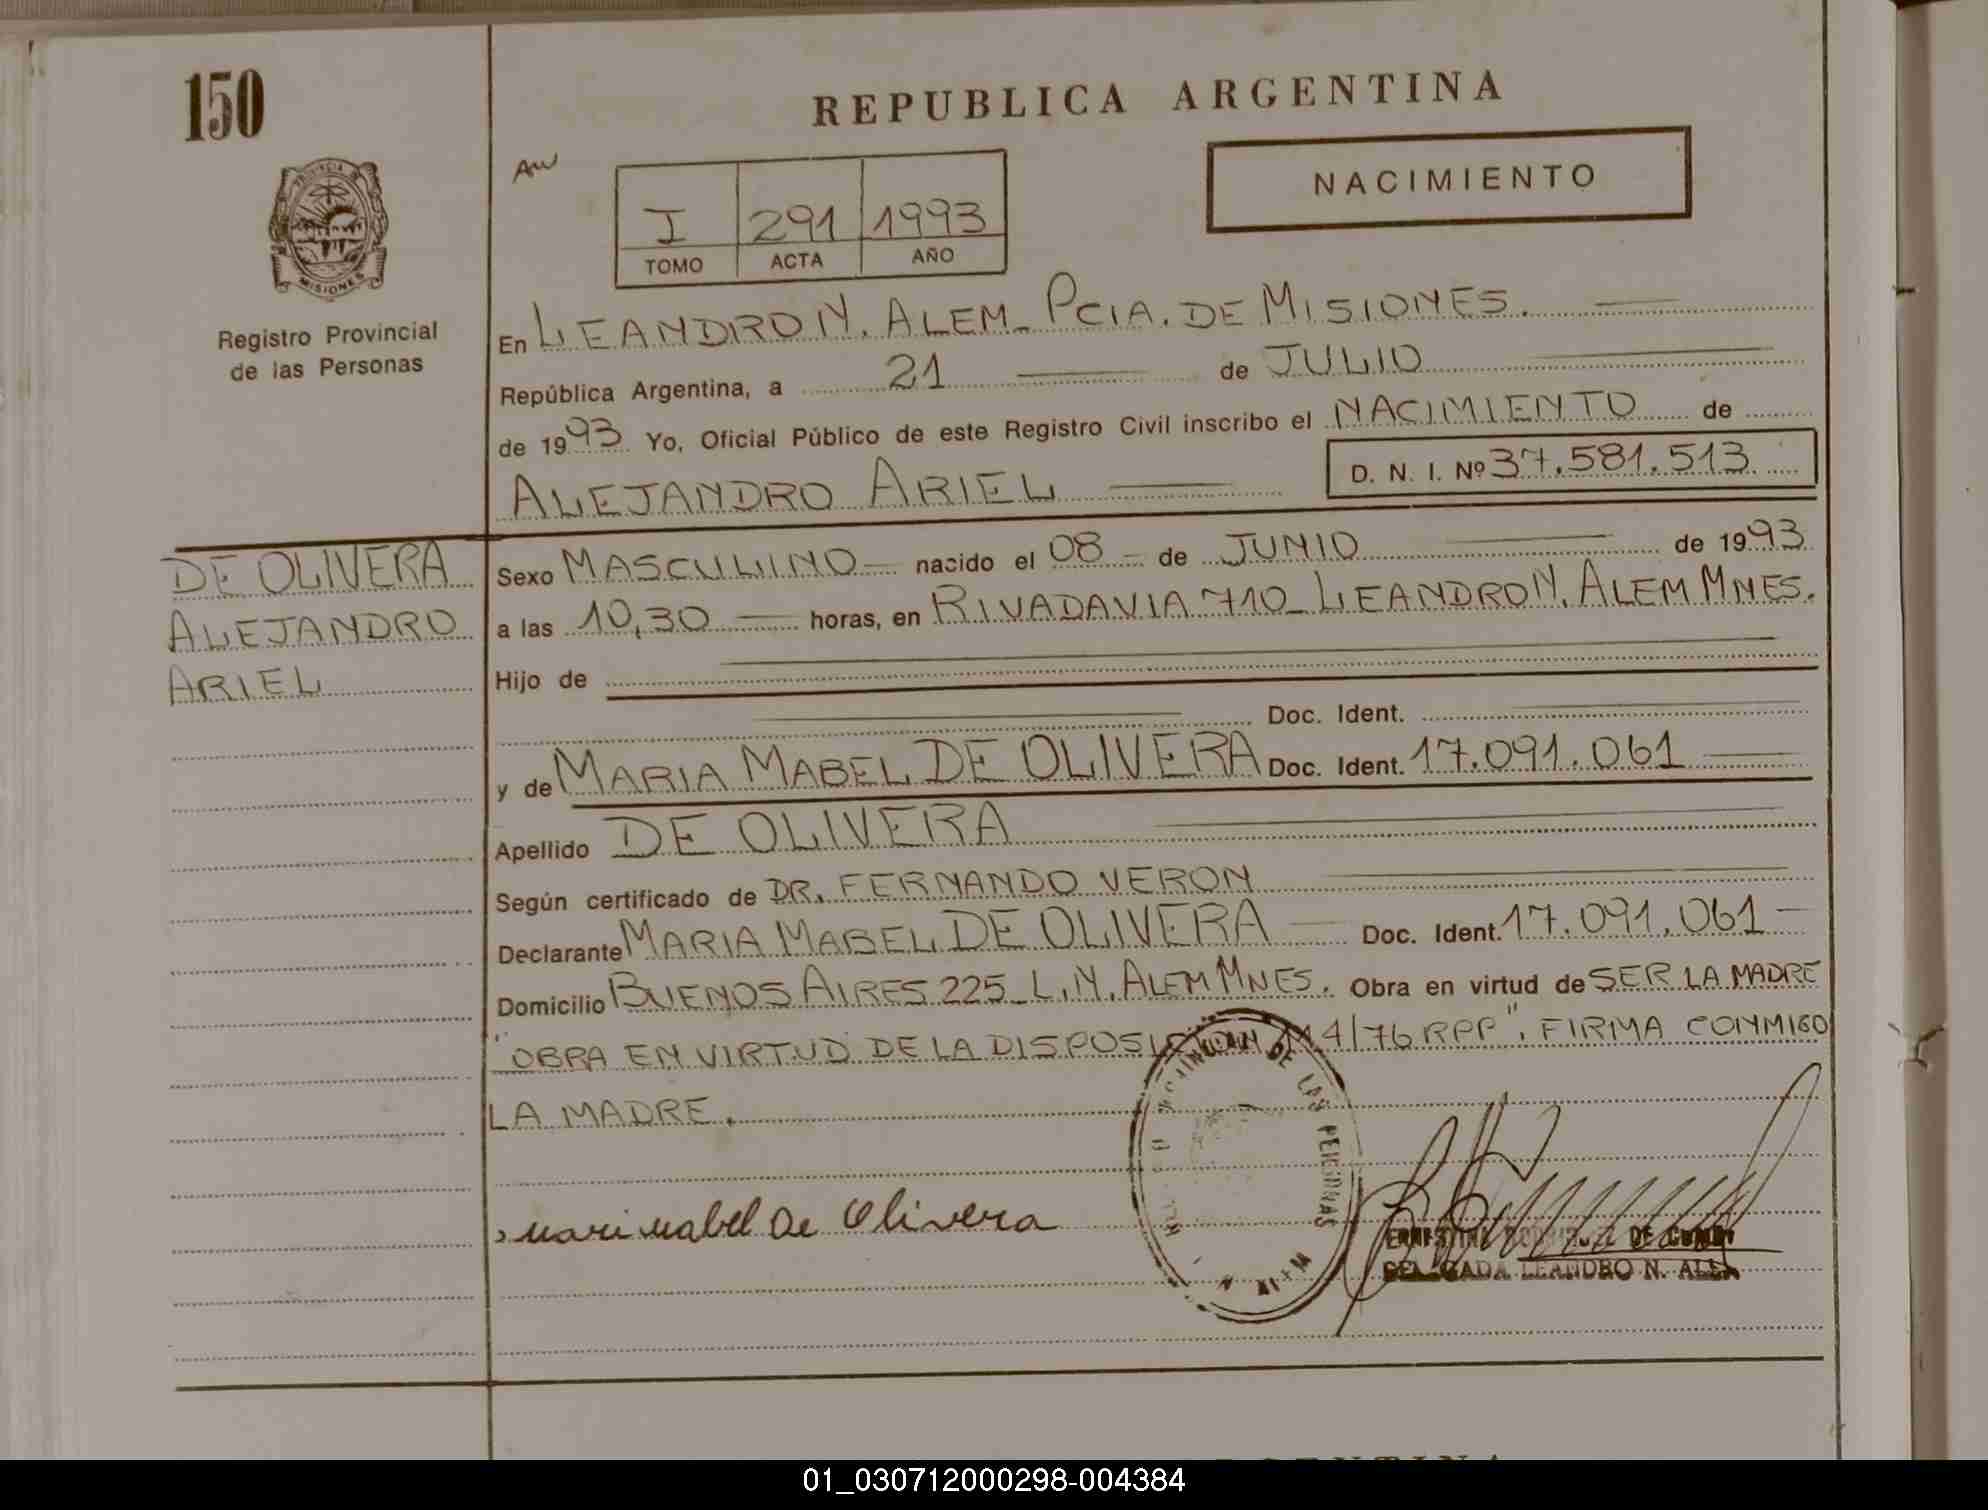 150
REPUBLICA ARGENTINA
NACIMIENTO
I 291 1993
TOMO ACTA AÑO
PROVINCIA DE
MISIONES
Registro Provincial
de las Personas
En LEANDRO N. ALEM_ PCIA. DE MISIONES.
República Argentina, a 21 de JULIO
de 1993 Yo, Oficial Público de este Registro Civil inscribo el NACIMIENTO de
ALEJANDRO ARIEL D. N. I. Nº 37.581.513
DE OLIVERA
ALEJANDRO
ARIEL
Sexo MASCULINO nacido el 08 de JUNIO de 1993
a las 10,30 horas, en RIVADAVIA 710_ LEANDRO N. ALEM MNES.
Hijo de
Doc. Ident.
y de MARIA MABEL DE OLIVERA Doc. Ident. 17.091.061
Apellido DE OLIVERA
Según certificado de DR. FERNANDO VERON
Declarante MARIA MABEL DE OLIVERA Doc. Ident. 17.091.061
Domicilio BUENOS AIRES 225_ L.N. ALEM MNES. Obra en virtud de SER LA MADRE
"OBRA EN VIRTUD DE LA DISPOSICION 14/76 RPP". FIRMA CONMIGO
LA MADRE.
DE LAS PERSONAS
mabel De Olivera
DE
DELEGADA LEANDRO N. ALEM
01_030712000298-004384